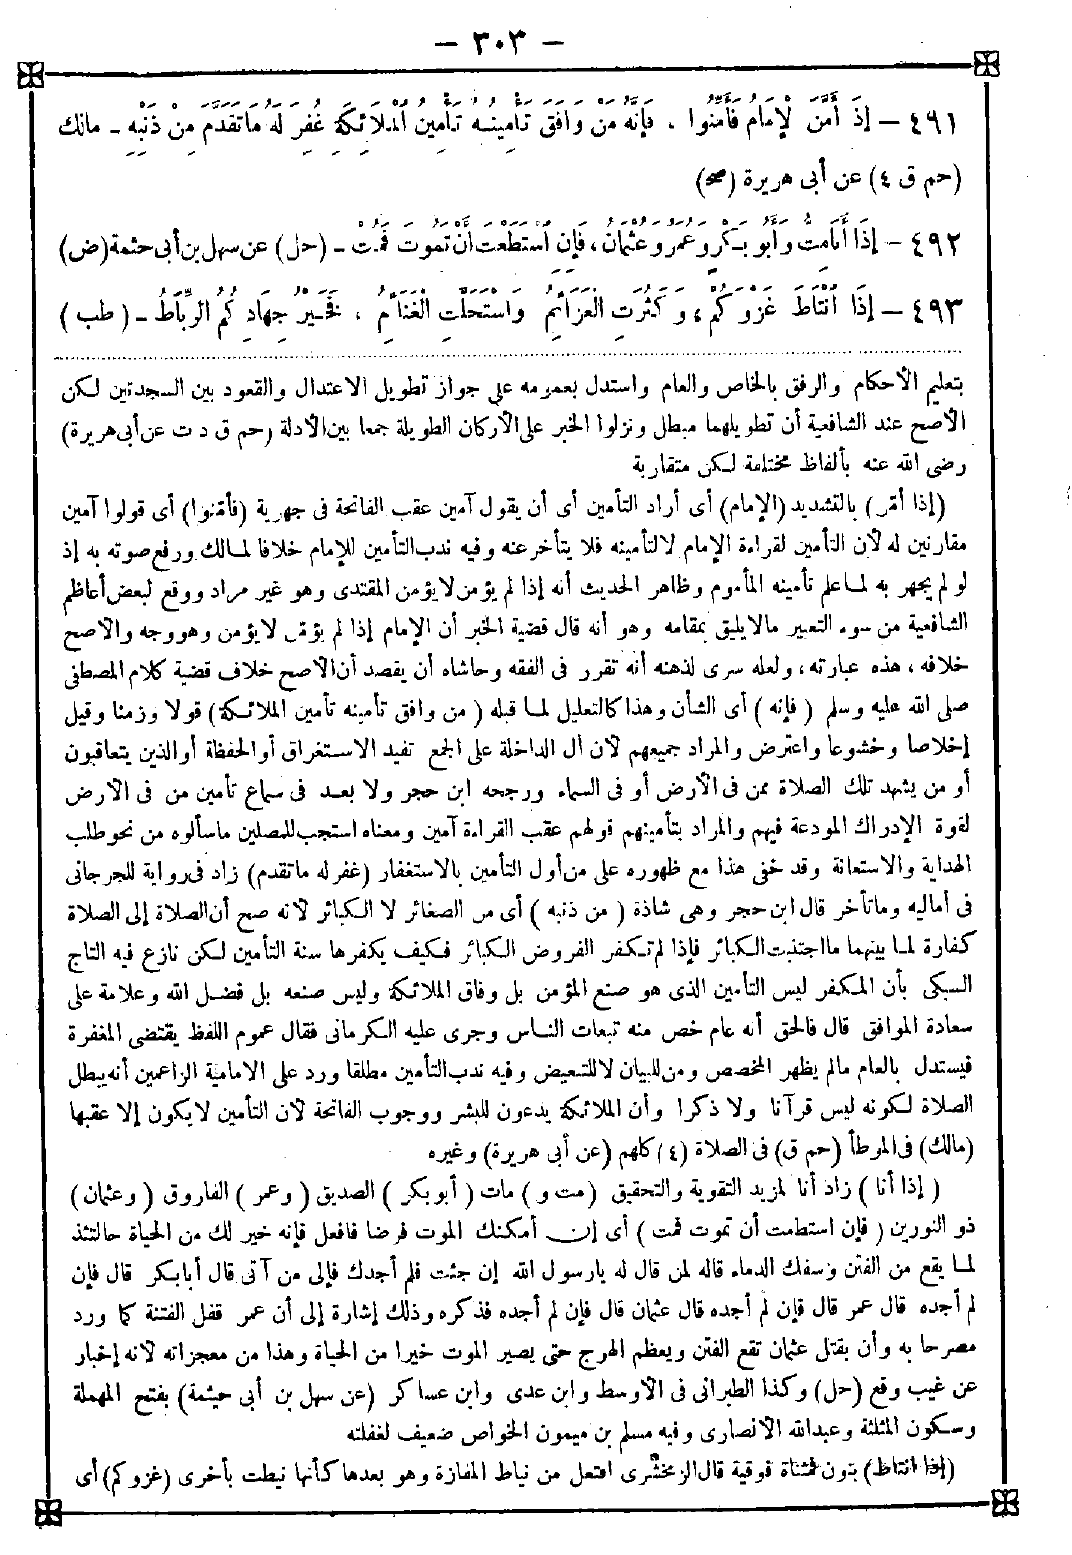 - ٣٠٣ -
٤٩١ - إِذَا أَمَّنَ الْإِمَامُ فَأَمِّنُوا ، فَإِنَّهُ مَنْ وَافَقَ تَأْمِينُهُ تَأْمِينَ الْمَلَائِكَةِ غُفِرَ لَهُ مَا تَقَدَّمَ مِنْ ذَنْبِهِ - مالك
(حم ق ٤) عن أبى هريرة (صح)
٤٩٢ - إِذَا أَنَا مِتُّ وَأَبُو بَكْرٍ وَعُمَرُ وَعُثْمَانُ ، فَإِنِ اسْتَطَعْتَ أَنْ تَمُوتَ فَمُتْ - (حل) عن سهل بن أبى حثمة (ض)
٤٩٣ - إِذَا انْتَاطَ غَزْوُكُمْ ، وَكَثُرَتِ الْعَزَائِمُ وَاسْتُحِلَّتِ الْغَنَائِمُ ، فَخَيْرُ جِهَادِكُمُ الرِّبَاطُ - ( طب )
بتعليم الأحكام والرفق بالخاص والعام واستدل بعمومه على جواز تطويل الاعتدال والقعود بين السجدتين لكن
الأصح عند الشافعية أن تطويلهما مبطل ونزلوا الخبر على الأركان الطويلة جمعا بين الأدلة (حم ق د ت عن أبى هريرة)
رضى الله عنه بألفاظ مختلفة لكن متقاربة
(إذا أمّن) بالتشديد (الإمام) أى أراد التأمين أى أن يقول آمين عقب الفاتحة فى جهرية (فأمّنوا) أى قولوا آمين
مقارنين له لأن التأمين لقراءة الإمام لا لتأمينه فلا يتأخر عنه وفيه ندب التأمين للإمام خلافا لمالك ورفع صوته به إذ
لو لم يجهر به لما علم تأمينه المأموم وظاهر الحديث أنه إذا لم يؤمن لا يؤمن المقتدى وهو غير مراد ووقع لبعض أعاظم
الشافعية من سوء التعبير مالا يليق بمقامه وهو أنه قال قضية الخبر أن الإمام إذا لم يؤمّن لا يؤمن وهو وجه والأصح
خلافه ، هذه عبارته ، ولعله سرى لذهنه أنه تقرر فى الفقه وحاشاه أن يقصد أن الأصح خلاف قضية كلام المصطفى
صلى الله عليه وسلم ( فإنه ) أى الشأن وهذا كالتعليل لما قبله ( من وافق تأمينه تأمين الملائكة) قولا وزمنا وقيل
إخلاصا وخشوعا واعترض والمراد جميعهم لأن أل الداخلة على الجمع تفيد الاستغراق أو الحفظة أو الذين يتعاقبون
أو من يشهد تلك الصلاة ممن فى الأرض أو فى السماء ورجحه ابن حجر ولا بعد فى سماع تأمين من فى الأرض
لقوة الإدراك المودعة فيهم والمراد بتأمينهم قولهم عقب القراءة آمين ومعناه استجب للمصلين ما سألوه من نحو طلب
الهداية والاستعانة وقد خفى هذا مع ظهوره على من أول التأمين بالاستغفار (غفر له ما تقدم) زاد فى رواية للجرجانى
فى أماليه وما تأخر قال ابن حجر وهى شاذة ( من ذنبه ) أى من الصغائر لا الكبائر لأنه صح أن الصلاة إلى الصلاة
كفارة لما بينهما ما اجتنبت الكبائر فإذا لم تكفر الفروض الكبائر فكيف يكفرها سنة التأمين لكن نازع فيه التاج
السبكى بأن المكفر ليس التأمين الذى هو صنع المؤمن بل وفاق الملائكة وليس صنعه بل فضل الله وعلامة على
سعادة الموافق قال فالحق أنه عام خص منه تبعات الناس وجرى عليه الكرمانى فقال عموم اللفظ يقتضى المغفرة
فيستدل بالعام مالم يظهر المخصص ومن للبيان لا للتبعيض وفيه ندب التأمين مطلقا ورد على الامامية الزاعمين أنه يبطل
الصلاة لكونه ليس قرآنا ولا ذكرا وأن الملائكة يدعون للبشر ووجوب الفاتحة لأن التأمين لا يكون إلا عقبها
(مالك) فى الموطأ (حم ق) فى الصلاة (٤) كلهم (عن أبى هريرة) وغيره
( إذا أنا ) زاد أنا لمزيد التقوية والتحقيق (مت و ) مات ( أبو بكر ) الصديق ( وعمر ) الفاروق ( وعثمان )
ذو النورين ( فإن استطعت أن تموت فمت ) أى إن أمكنك الموت فرضا فافعل فإنه خير لك من الحياة حالتئذ
لما يقع من الفتن وسفك الدماء قاله لمن قال له يارسول الله إن جئت فلم أجدك فإلى من آتى قال أبا بكر قال فإن
لم أجده قال عمر قال فإن لم أجده قال عثمان قال فإن لم أجده فذكره وذلك إشارة إلى أن عمر قفل الفتنة كما ورد
مصرحا به وأن بقتل عثمان تقع الفتن ويعظم الهرج حتى يصير الموت خيرا من الحياة وهذا من معجزاته لأنه إخبار
عن غيب وقع (حل) وكذا الطبرانى فى الأوسط وابن عدى وابن عساكر (عن سهل بن أبى حثمة) بفتح المهملة
وسكون المثلثة وعبدالله الأنصارى وفيه مسلم بن ميمون الخواص ضعيف لغفلته
(إذا انتاط) بنون فمثناة فوقية قال الزمخشرى افتعل من نياط المفازة وهو بعدها كأنها نيطت بأخرى (غزوكم) أى